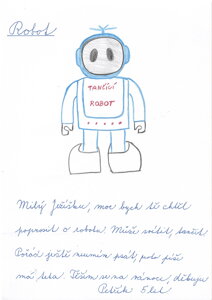 Robot
TANČÍCÍ
ROBOT
Milý Ježíšku, moc bych tě chtěl
poprosit o robota. Může svítit, tančit.
Pořád ještě neumím psát, proto píše
má teta. Těším se na vánoce, děkuji